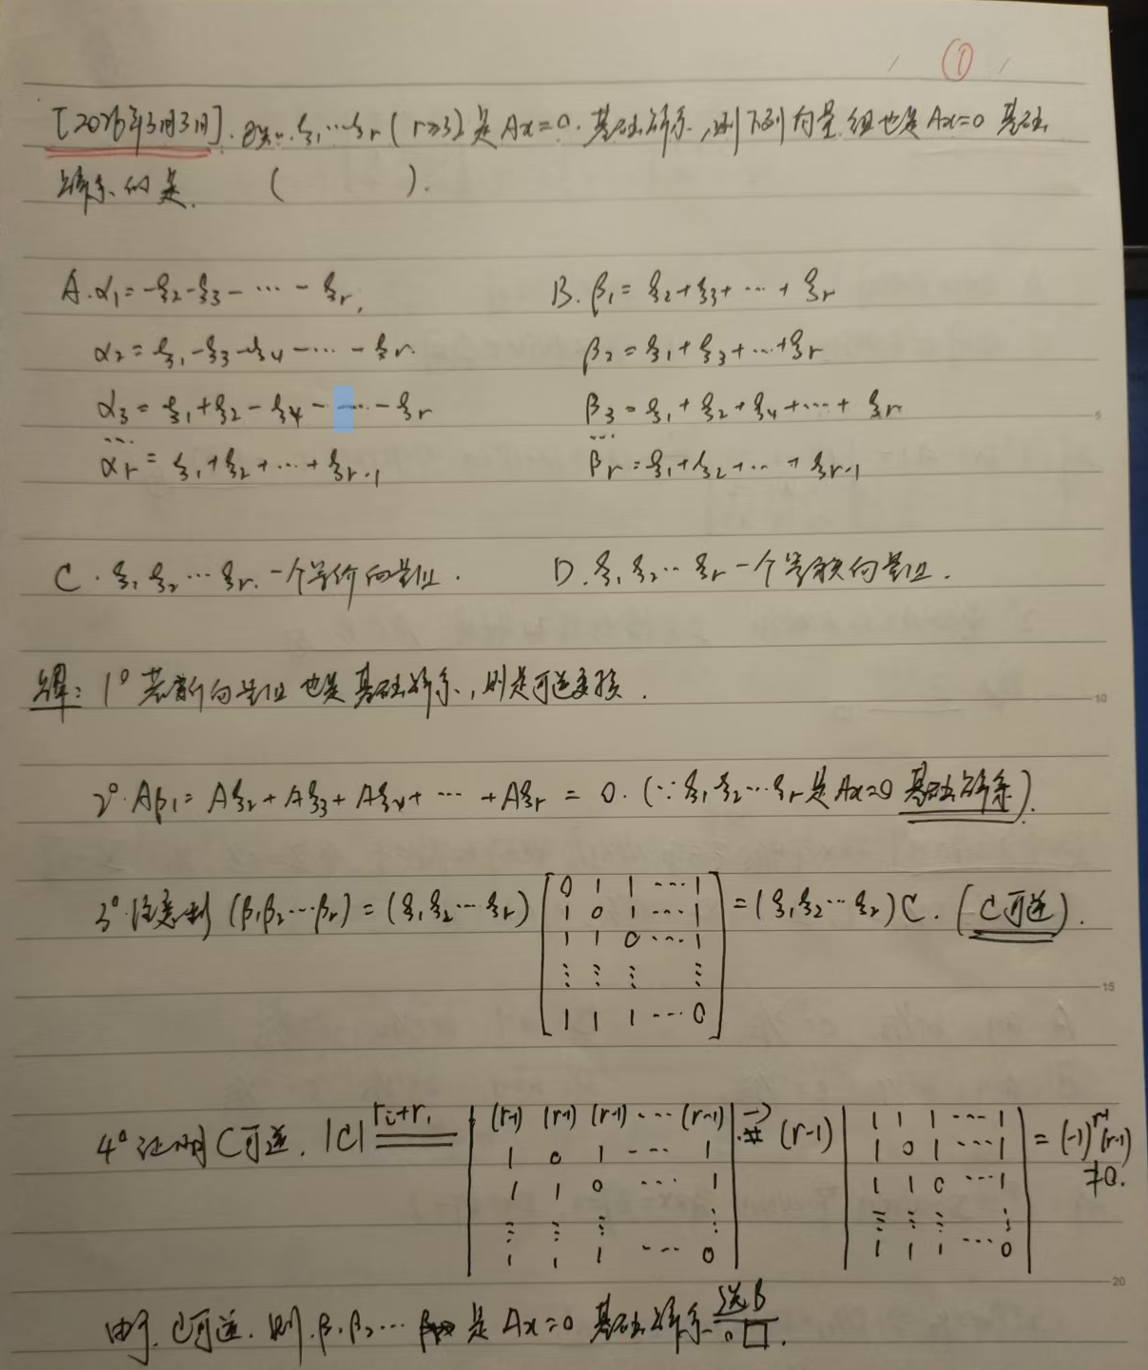 ①
[2026年3月3日]. 已知:ξ₁…ξr (r≥3) 是 Ax=0. 基础解系,则下列向量组也是Ax=0 基础
解系的是. ( ).
A. α₁=-ξ₂-ξ₃-…-ξr, B. β₁=ξ₂+ξ₃+…+ξr
α₂=ξ₁-ξ₃-ξ₄-…-ξr. β₂=ξ₁+ξ₃+…+ξr
α₃=ξ₁+ξ₂-ξ₄-…-ξr β₃=ξ₁+ξ₂+ξ₄+…+ξr
… …
αr=ξ₁+ξ₂+…+ξr-1 βr=ξ₁+ξ₂+…+ξr-1
C. ξ₁ ξ₂…ξr. 一个等价向量组. D. ξ₁ ξ₂…ξr 一个等秩向量组.
解: 1° 若新向量组也是基础解系,则是可逆变换.
2°. Aβ₁=Aξ₂+Aξ₃+Aξ₄+…+Aξr=0. (∵ξ₁ ξ₂…ξr是Ax=0 基础解系).
3°. 注意到 (β₁β₂…βr)=(ξ₁ξ₂…ξr) [0 1 1 … 1
1 0 1 … 1
1 1 0 … 1
⋮ ⋮ ⋮ ⋮
1 1 1 … 0] =(ξ₁ξ₂…ξr)C. (C可逆).
4° 证明C可逆. |C| rᵢ+r₁ = |(r-1) (r-1) (r-1) … (r-1)
1 0 1 … 1
1 1 0 … 1
⋮ ⋮ ⋮ ⋮
1 1 1 … 0| → (r-1) |1 1 1 … 1
1 0 1 … 1
1 1 0 … 1
⋮ ⋮ ⋮ ⋮
1 1 1 … 0| = (-1)^{r-1}(r-1)
≠0.
由于. C可逆. 则. β₁β₂… 是 Ax=0 基础解系. 选B
。□.